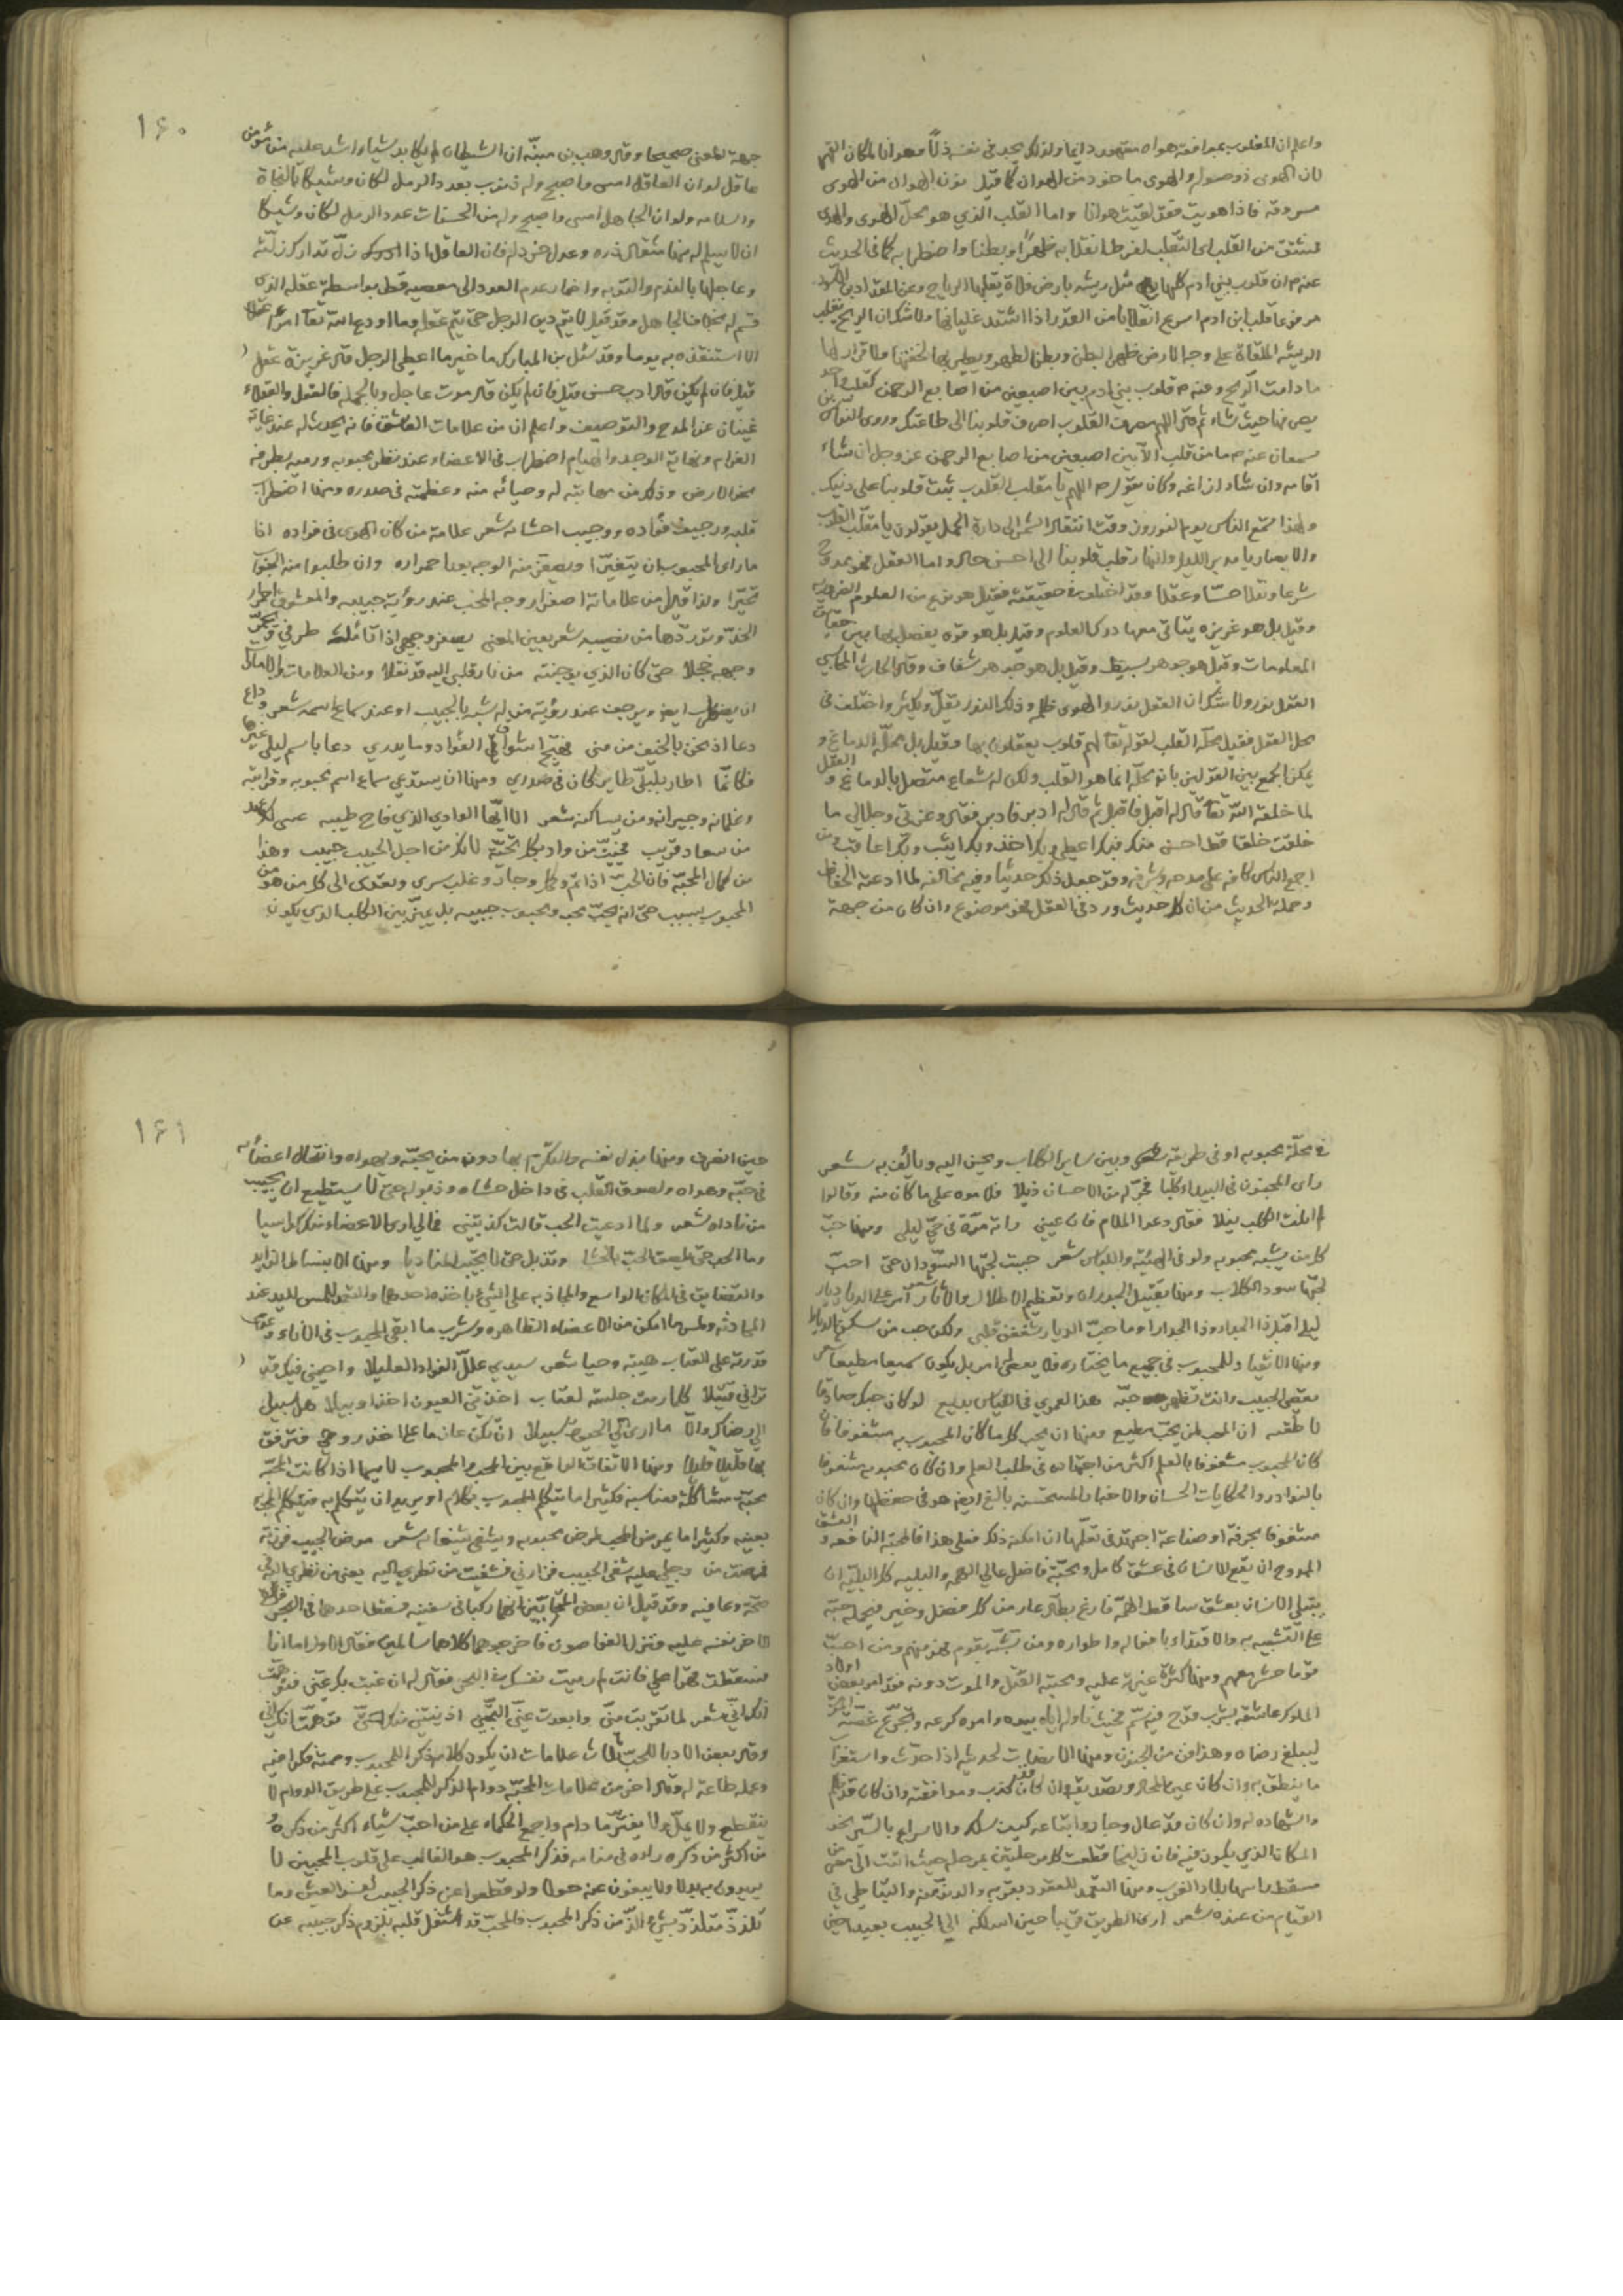 واعلم ان المغلوب بموافقة هواه مقهور دايما ولذلك يجد في نفسه ذلاً وهوانا لمكان القهر
لان الهوى ذو صوله والهوى ماخوذ من الهوان كما قيل نون الهوان من الهوى
مسروقة فاذا هويت فقد لقيت هوانا واما القلب الذي هو محلّ الهوى والهدى
فمشتق من القلب اى التقلب لفرط انقلابه ظهراً وبطنا واضطرابه كما في الحديث
عنه م ان قلوب بني ادم كلها مثل ريشه بارض فلاة يقلبها الرياح وعن المقداد بن الاسود
مرفوعا قلب ابن ادم اسرع انقلابا من القدر اذا اشتد غليانها ولا شك ان الريح تقلب
الريشه الملقاة على وجه الارض ظهر البطن وبطنا لظهر ويطير بها لخفتها ولا قرار لها
ما دامت الريح وعنه م قلوب بني ادم بين اصبعين من اصابع الرحمن كقلب واحد
يصرفها حيث شاء ثم قال اللهم مصرف القلوب اصرف قلوبنا الى طاعتك وروى النواس بن
سمعان عنه م ما من قلب الا بين اصبعين من اصابع الرحمن عز وجل ان شاء
اقامه وان شاء ازاغه وكان يقول م اللهم يا مقلب القلوب ثبت قلوبنا على دينك
ولهذا سمع الناس يوم النوروز وقت انتقال الشمس الى دارة الحمل يقولون يا مقلّب القلوب
والابصار يا مدبر الليل والنهار قلب قلوبنا الى احسن حال واما العقل فهو ممدوح
شرعا ونقلا حسّا وعقلا وقد اختلف في حقيقته فقيل هو نوع من العلوم الضروريه
وقيل بل هو غريزه يتاتى معها درك العلوم وقيل بل هو قوه يفصل بها بين حقايق
المعلومات وقيل هو جوهر بسيط وقيل بل هو جوهر شفاف وقال الحارث المحاسبي
العقل نور ولا شك ان العقل نور والهوى ظلمه وذلك النور يقلّ ويكثر واختلف في
محل العقل فقيل محلّه القلب لقوله تعا لهم قلوب يعقلون بها وقيل بل محلّه الدماغ و
يمكن الجمع بين القولين بانه محلّه انما هو القلب ولكن له شعاع متصل بالدماغ و العقل
لما خلقه الله تعا قال له اقبل فاقبل ثم قال له ادبر فادبر فقال وعزتي وجلالي ما
خلقت خلقا قط احسن منك فبك اعطي وبك اخذ وبك اثيب وبك اعاقب ومن
اجمع الناس كافه على مدحه وشرفه وقد جعل ذلك حديثا وفيه مخالفه لما ادعته الحفاظ
وحملة الحديث من ان كل حديث ورد في العقل فهو موضوع وان كان من جهة
١٦٠
جهة المعنى صحيحا وقال وهب بن منبّه ان الشيطان لم يكابد شياء اشد عليه من مؤمن
عاقل لو ان العاقل امسى واصبح وله ذنوب بعدد الرمل لكان وشيكا بالنجاة
والسلامه ولو ان الجاهل امسى واصبح وله من الحسنات عدد الرمل لكان وشيكا
ان لا يسلم له منها مثقال ذره وعدل خردله فان العاقل اذا زلّ تدارك زلّته
وعاجلها بالندم والتوبه واضمار عدم العود الى معصيه قط بواسطة عقله الذى
قسم له بخلاف الجاهل وقد قيل لا يتم دين الرجل حتى يتم عقله وما اودع الله تعا امرأ عقلا
الا استنقذه به يوما وقد سئل بن المبارك ما خير ما اعطي الرجل قال غريزة عقل
قيل فان لم يكن قال ادب حسن قيل فان لم يكن قال موت عاجل وبالجمله فالعقل والعقلاء
غنيان عن المدح والتوصيف واعلم ان من علامات العاشق فانه يحدث له عند غاية
الغرام ونهاية الوجد والهيام اضطراب في الاعضاء عند نظر محبوبه ورميه بطرفه
نحو الارض وذلك من مهابته له وحيائه منه وعظمته في صدره ومنها اضطراب
قلبه ورجيف فؤاده ووجيب احشائه شعر علامة من كان الهوى في فؤاده اذا
ما راى المحبوب ان يتغيّرا ويصفر منه الوجه بعد احمراره وان طلبوا منه الجواب
تحيّرا ولذا قال من علاماته اصفرار وجه المحب عند رؤية حبيبه والمعشوق احمرار
الخدّ وتورّدها من نصيبه شعر بعين المعنى يصفر وجهي اذا تأمله طرفي ويحمرّ
وجهه خجلا حتى كان الذي بوجنته من نار قلبي اليه قد نقلا ومن العلامات والامارات
ان يضطرب ايضا ويرجف عند رؤية من له شبه بالحبيب او عند سماع اسمه شعر وداع
دعا اذ نحن بالخيف من منى فهيّج اشواق الفؤاد وما يدري دعا باسم ليلى غيرها
فكانّما اطار بليلى طايرا كان في صدري ومنها ان يستدعي سماع اسم محبوبه وقرابته
وغلمانه وجيرانه ومن يساكنه شعر الا ايّها الوادي الذي فاح طيبه عسى لك عهد
من سعاد قريب فحيّيت من واد بكل تحيّة لانك من اجل الحبيب حبيب وهذا
من كمال المحبّه فان الحبّ اذا تمّ وكمل وجاد وغلب سرى وتعدّى الى كل من هو من
المحبوب بسبب حتى انه يحبّ محبه ومحبوب حبيبه بل يميّز بين الكلب الذي يكون
في محلّة محبوبه او في طريقه وبين ساير الكلاب ويحسن اليه ويالف به شعر
راى المجنون في البيداء كلبا فجرّ له من الاحسان ذيلا فلاموه على ما كان منه وقالوا
لم انلت الكلب نيلا فقال دعوا الملام فان عيني راته مرّة في حيّ ليلى ومنها حبّ
كل من يشبه محبوبه ولو في الهيئة واللباس شعر حببت لحبّها السّودان حتى احبّ
لحبّها سود الكلاب ومنها تقبيل الجدران وتعظيم الاطلال والاثار شعر امر على الديار ديار
ليلى اقبّل ذا الجدار وذا الجدارا وما حبّ الديار شغفن قلبي ولكن حب من سكن الديارا
ومنها الانقياد للمحبوب في جميع ما يختاره فلا يعطى امر بل يكون سميعا مطيعا شعر
تعصي الحبيب وانت تظهر حبّه هذا لعمري في القياس بديع لو كان حبك صادقا
لاطعته ان المحب لمن يحبّ مطيع ومنها ان يحب كل ما كان المحبوب به مشغوفا فان
كان المحبوب مشغوفا بالعلم اكثر من اجتهاده في طلب العلم وان كان محبوبه مشغوفا
بالنوادر والحكايات الحسان والاخبار المستحسنه بالغ ايضا هو في حفظها وان كان
مشغوفا بحرفة او صناعة اجتهد في تعلّمها ان امكنه ذلك فعلى هذا فالمحبّه النافعه و العشق
الممدوح ان يقع الانسان في عشق كامل ومحبّة فاضل عالي الهمه والبليه كل البليّه ان
يبتلي الانسان بعشق ساقط الهمّه فارغ بطّال عار من كل فضل وخير فيحمله حبّه
على التشبيه به والاقتداء بافعاله واطواره ومن تشبّه بقوم فهو منهم ومن احبّ
قوما حشر معهم ومنها كثرة غيرته عليه ومحبته القتل والموت دونه فقد امر بعض اولاد
الملوك عاشقه بشرب قدح فيه سمّ فحيث ناوله اياه بيده وامره كرعه وتجرّع غصّته
ليبلغ رضاه وهذا فن من الجنون ومنها الانصات لحديثه اذا حدّث واستغراب
ما ينطق به وان كان عين المحال وتصديقه وان كذب وموافقته وان كان قد ظلم
والشهادة له وان كان قد عال وجار واتباعه كيف سلك والاسراع بالسّير نحو
المكان الذي يكون فيه فان زليخا قطعت كل مرحلتين بمرحله حيث اتت الى مصر من
مسقط راسها بلاد الغرب ومنها التعمد للقعود بقربه والدنوّ منه والتباطي في
القيام من عنده شعر ارى الطريق قريبا حين اسلكه الى الحبيب بعيدا حين
١٦١
حين انصرف ومنها بذل نفسه والتكرّم بها دون من يحبّه ويهواه وانتحال اعضائه
في حبّه وهواه ولصوق القلب في داخل حشاه وذبوله حتى لا يستطيع ان يجيب
من ناداه شعر ولما ادعيت الحب قالت كذبتني فمالي ارى الاعضاء منك كواسيا
وما الحب حتى يلصق الحبّ بالحشا وتذبل حتى لا تجيب المناديا ومنها الانبساط الزايد
والتضايق في المكان الواسع والمجاذبه على الشيء ياخذه احدهما والتعمد للمس اليد عند
المحادثه ولمس ما امكن من الاعضاء الظاهره وشرب ما ابقى المحبوب في الاناء وعدم
قدرته على العتاب هيبه وحيا شعر سيدي علّل الفؤاد العليلا واحيني قبل
تراني قتيلا كلما رمت جلسة لعتاب اخذتني العيون اخذا وبيلا هل سبيل
الى رضاك والا ما ارى لي الى الحيوة سبيلا ان تكن عازما على اخذ روحي فترفق
بها قليلا قليلا ومنها الاتفاق الواقع بين المحب والمحبوب لا سيما اذا كانت المحبّه
محبّة مشاكلة ومناسبه فكثيرا ما يتكلم المحبوب بكلام او يريد ان يتكلم به فيتكلم المحب
بعينه وكثيرا ما يمرض المحب لمرض محبوبه ويشفى بشفائه شعر مرض الحبيب فزرته
فمرضت من وجلي عليه شفى الحبيب فزارني فشفيت من نظري اليه يعني من نظري الى
صحّته وعافيته وقد قيل ان بعض المتحابّين انهما ركبا في سفينه فسقط احدهما في البحر فالقى
الاخر نفسه عليه فنزل الغواصون فاخرجوهما كلاهما سالمين فقال الاول اما انا
فسقطت فهوا اصلي فانت لم رميت نفسك في البحر فقال له ان غبت بك عنّي فتوهمت
انك انّي شعر لما تقرّبت منّي وابعدت عنّي التجنّي ادنيتني منك حتى توهمت انك انّي
وقال بعض الادبا للحبّ ثلاث علامات ان يكون كلامه ذكر المحبوب وصمته فكرا فيه
وعمله طاعة له وقال اخر من علامات المحبّه دوام الذكر للمحبوب على طريق الدوام لا
ينقطع ولا يملّ ولا يفترّ ما دام واجمع الحكماء على من احبّ شياء اكثر من ذكره
من اكثر من ذكره راه في منامه فذكر المحبوب هو الغالب على قلوب المحبين لا
يريدون به بدلا ولا يبغون عنه حولا ولو قطعوا عن ذكر الحبيب لفسد العيش وما
تلذذ متلذذ بشيء الذّ من ذكر المحبوب فالمحبّ قد اشتغل قلبه بلزوم ذكر حبيبه عن